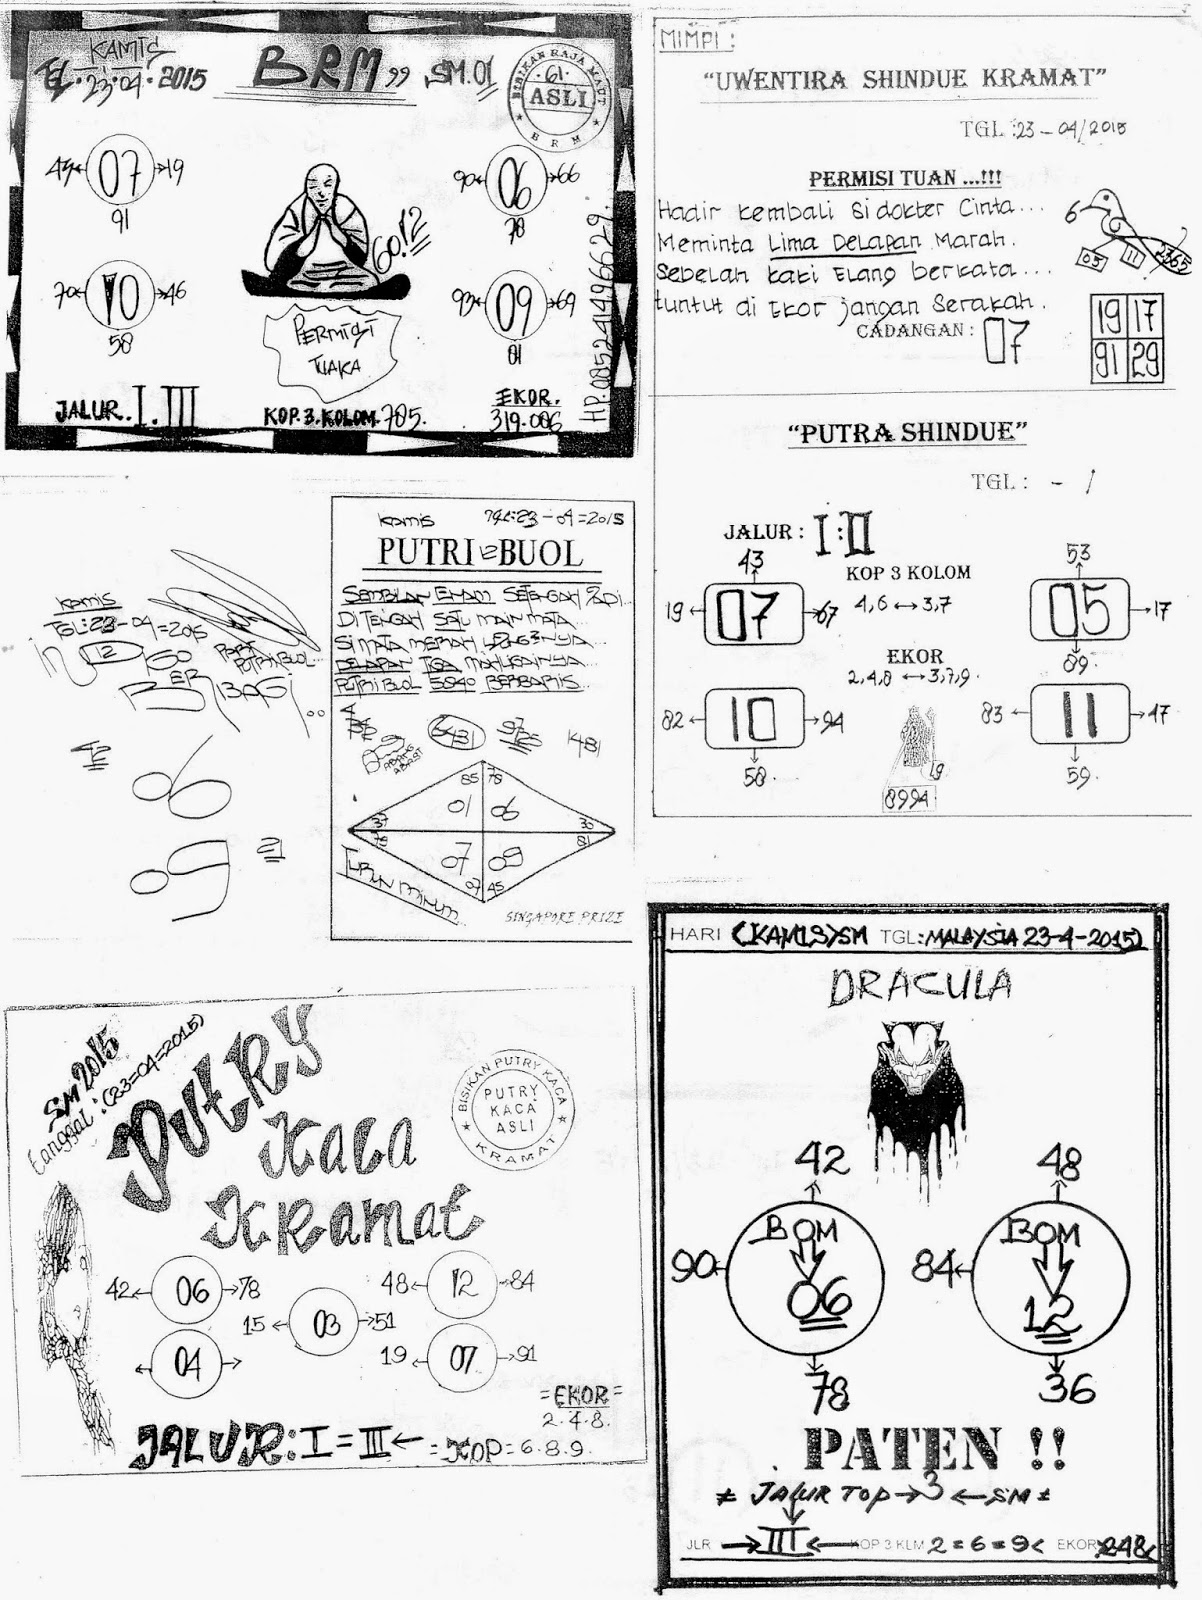 KAMIS
TGL. 23.04.2015
BRM99
SM.01
BISIKAN RAJA MAUT
61
ASLI
BRM
07
19
91
90
06
66
78
70
10
46
58
93
09
69
60.12
PERMISI
JALUR. I. III
KOP. 3. KOLOM. 705.
EKOR.
319.006
MIMPI :
“UWENTIRA SHINDUE KRAMAT”
TGL : 23 – 04/2015
PERMISI TUAN ...!!!
Hadir kembali Si dokter Cinta...
Meminta Lima Delapan Marah.
Sebelah kaki Elang berkata...
tuntut di Ekor jangan Serakah.
CADANGAN :
07
6
05
11
2365
19 17
91 29
“PUTRA SHINDUE”
TGL : - /
JALUR : I : II
43
19
07
67
KOP 3 KOLOM
4,6 ↔ 3,7
53
05
17
89
EKOR
2,4,8 ↔ 3,7,9
82
10
94
58
83
11
47
59
19
8994
kamis
TGL:23-04=2015
12
BERBAGI...
42
06
09
21
kamis TGL:23-04=2015
PUTRI 12 BUOL
SEMBILAN ENAM SETENGAH PADI...
DI TENGAH SATU MAIN MATA...
DELAPAN TIGA
PUTRI BUOL 5940 BERBARIS...
6431
1481
85 78
01 06
37 30
79 81
07 09
07 45
TURUN MINUM
SINGAPORE PRIZE
SM2015
Tanggal : (23=04=2015)
PUTRY
Kaca
Kramat
BISIKAN PUTRY KACA
PUTRY
KACA
ASLI
KRAMAT
42 ← 06 → 78
48 ← 12 → 84
15 ← 03 → 51
← 04 →
19 ← 07 → 91
= EKOR =
2.4.8.
JALUR : I = III ← = KOP = 6.8.9.
HARI (KAMIS) SM TGL: MALAYSIA 23-4-2015)
DRACULA
42
48
90
BOM
06
84
BOM
12
78
36
PATEN !!
JALUR TOP → 3 ← SM
JLR → III ← KOP 3 KLM 2 = 6 = 9 < EKOR 248